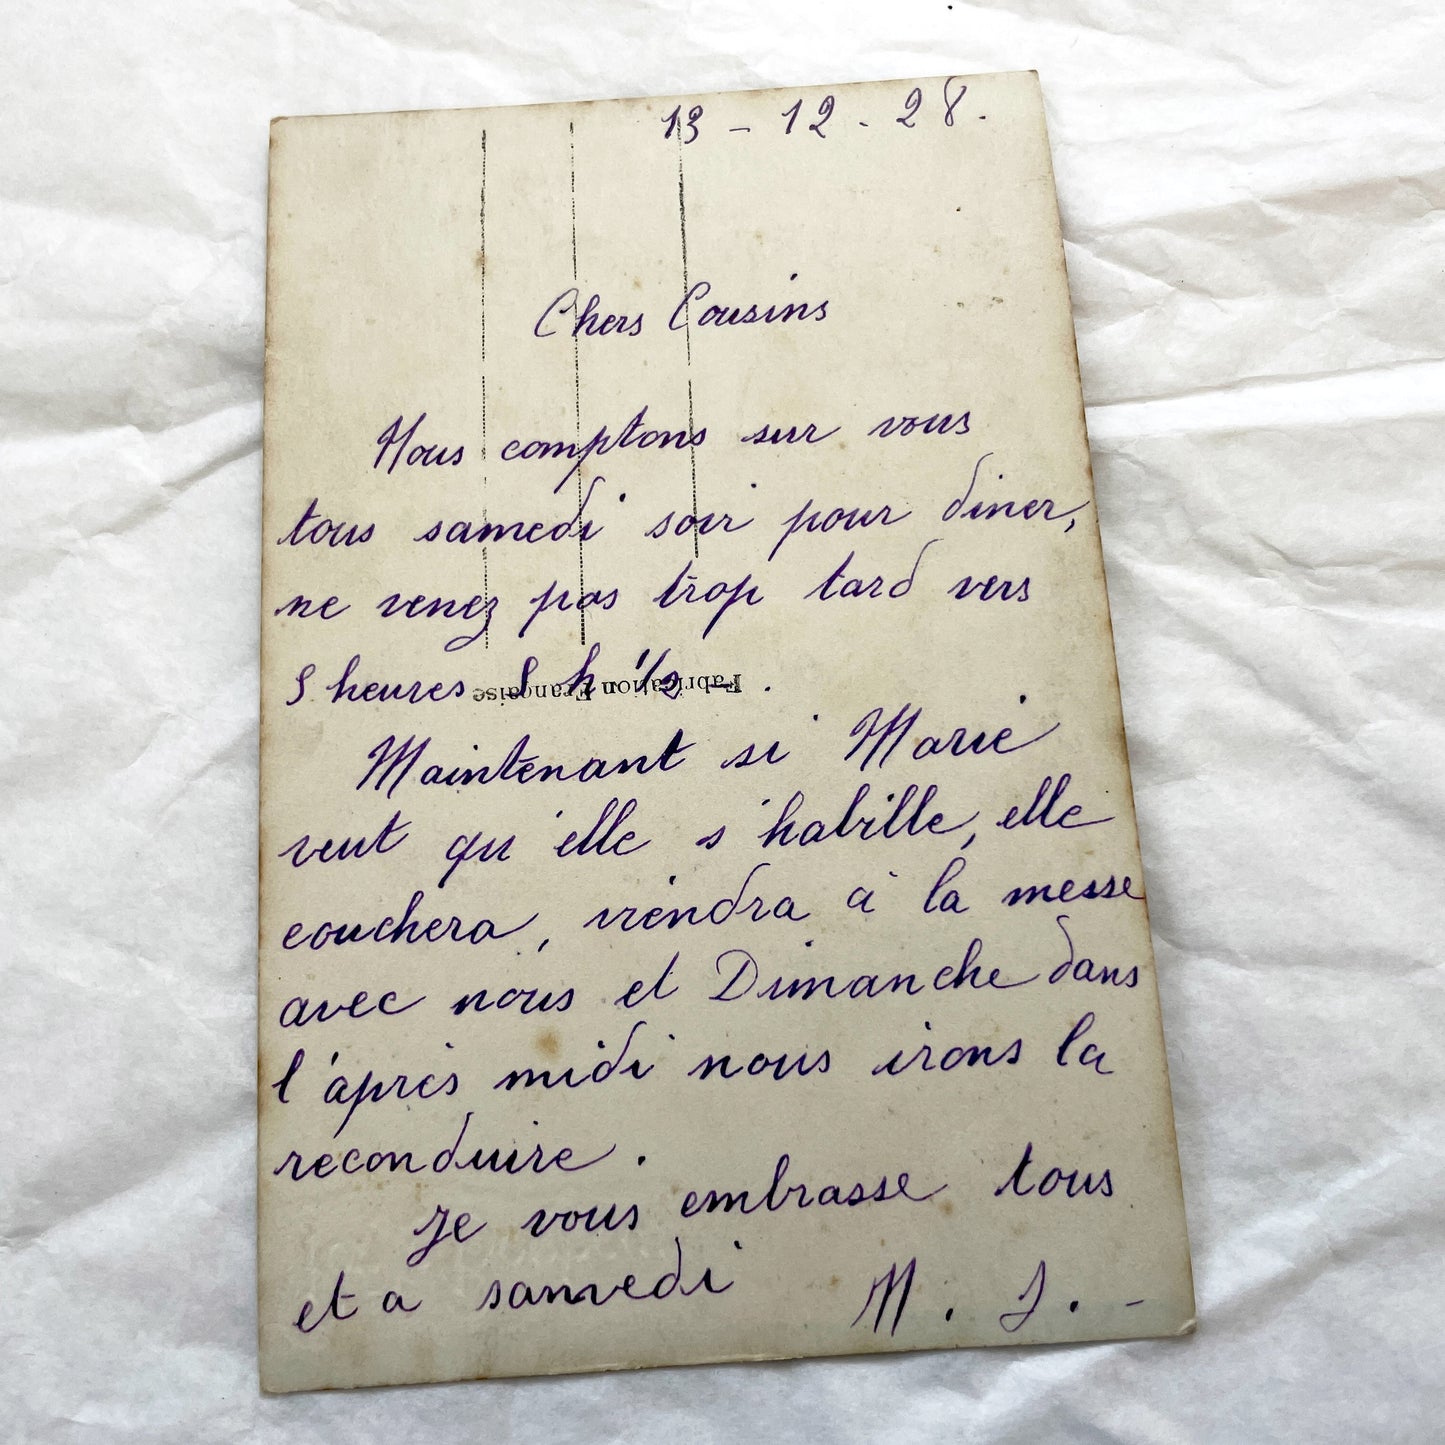 13 - 12 - 28.
Chers Cousins
Nous comptons sur vous
tous samedi soir pour diner,
ne venez pas trop tard vers
5 heures 5 h 1/2 - .
Fabrication Française
Maintenant si Marie
veut qu'elle s'habille, elle
couchera, viendra à la messe
avec nous et Dimanche dans
l'après midi nous irons la
reconduire.
Je vous embrasse tous
et a samedi M. J. -